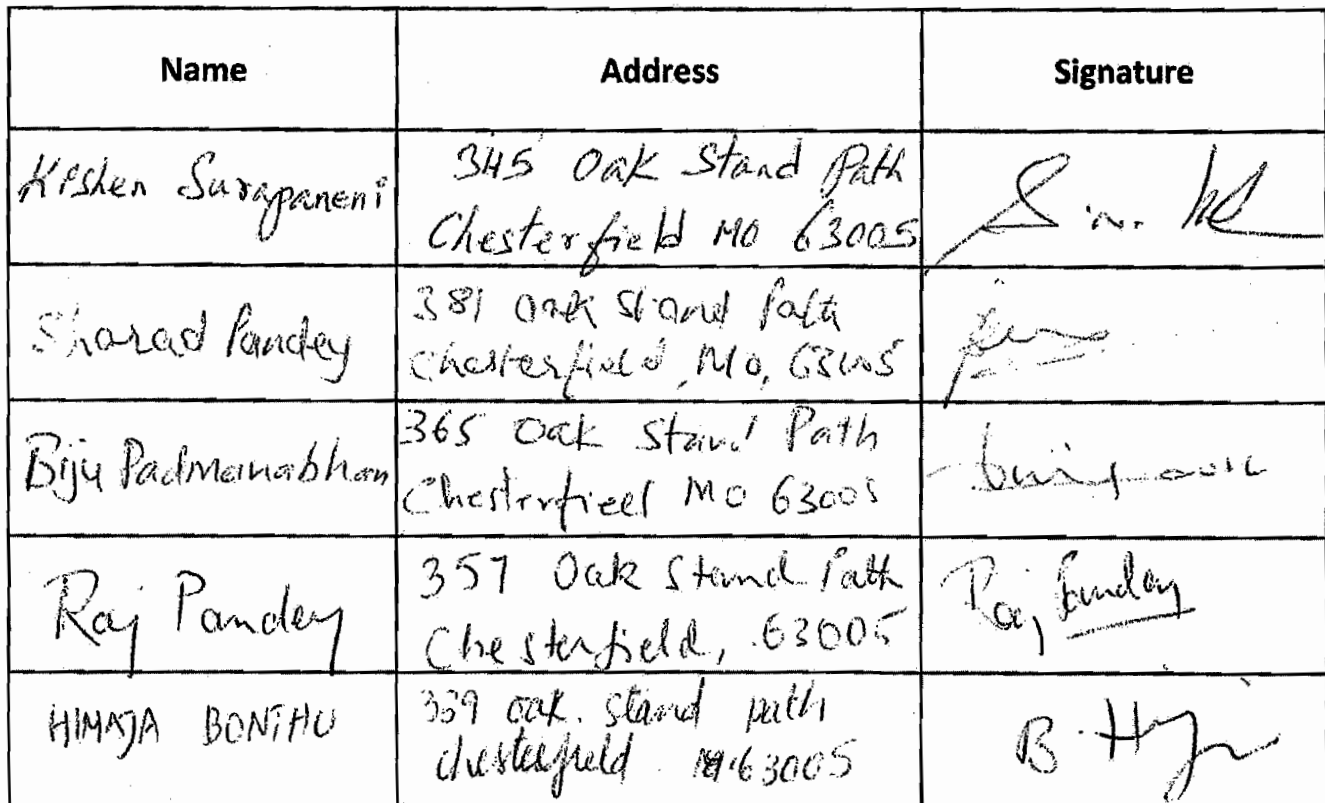 Name Address Signature
Kishen Surapaneni
345 Oak Stand Path
Chesterfield MO 63005
Sharad Pandey
381 Oak Stand Path
Chesterfield, Mo, 63005
Biju Padmanabhan
365 Oak Stand Path
Chesterfieel MO 63005
Raj Pandey
357 Oak Stand Path
Chesterfield, 63005
Raj Pandey
HIMAJA BONTHU
339 oak. stand path
chesterfield 63005
B.